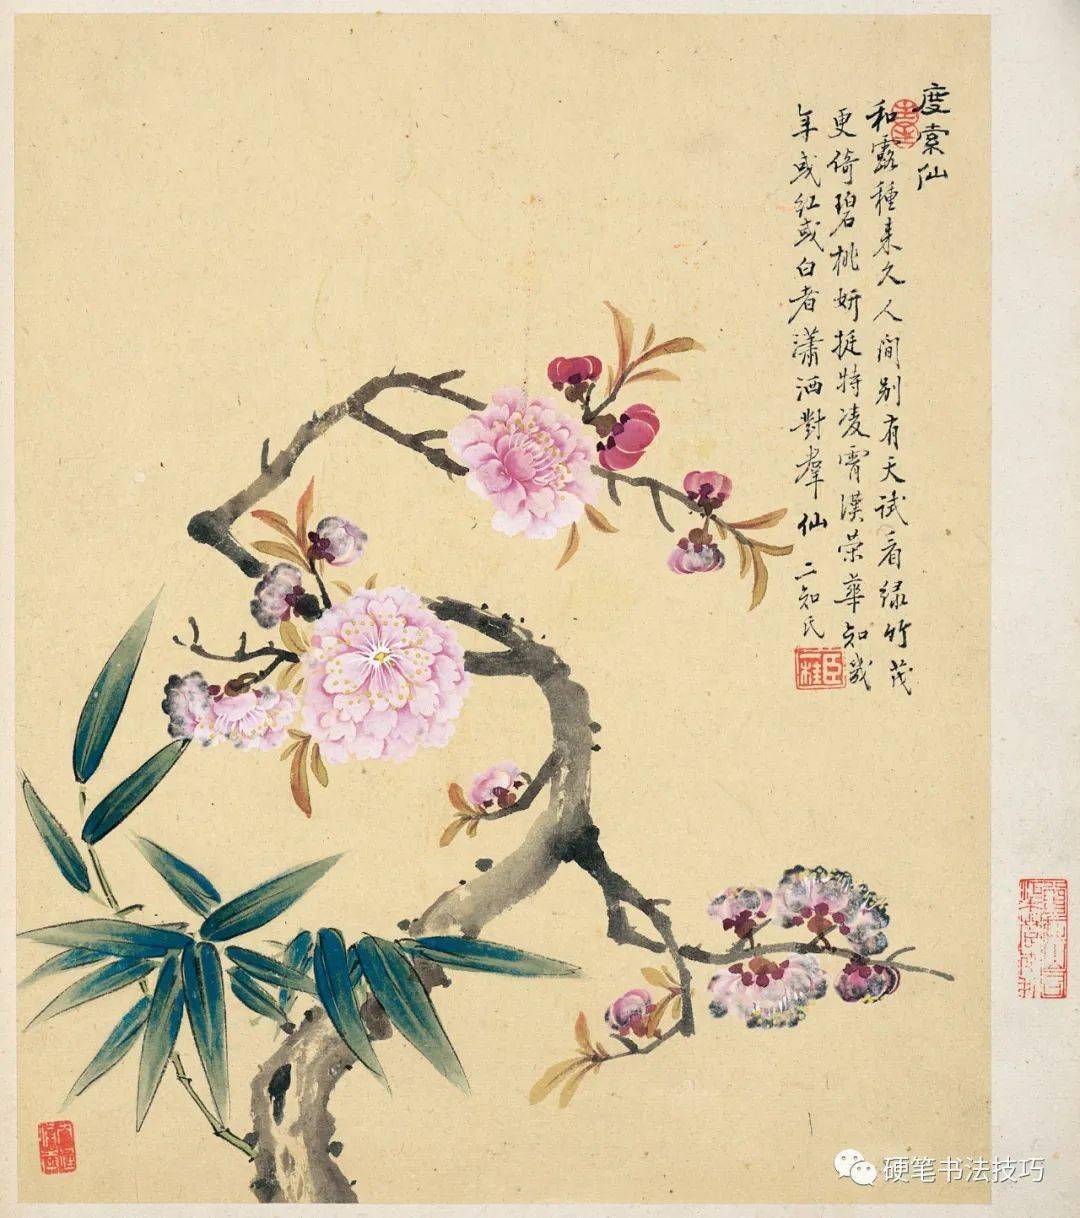 度索仙
和露種来久人間别有天試看緑竹茂
更倚碧桃妍挺特凌霄漢荣華知幾
年或红或白者瀟洒對羣仙 二知氏
臣一桂
硬笔书法技巧